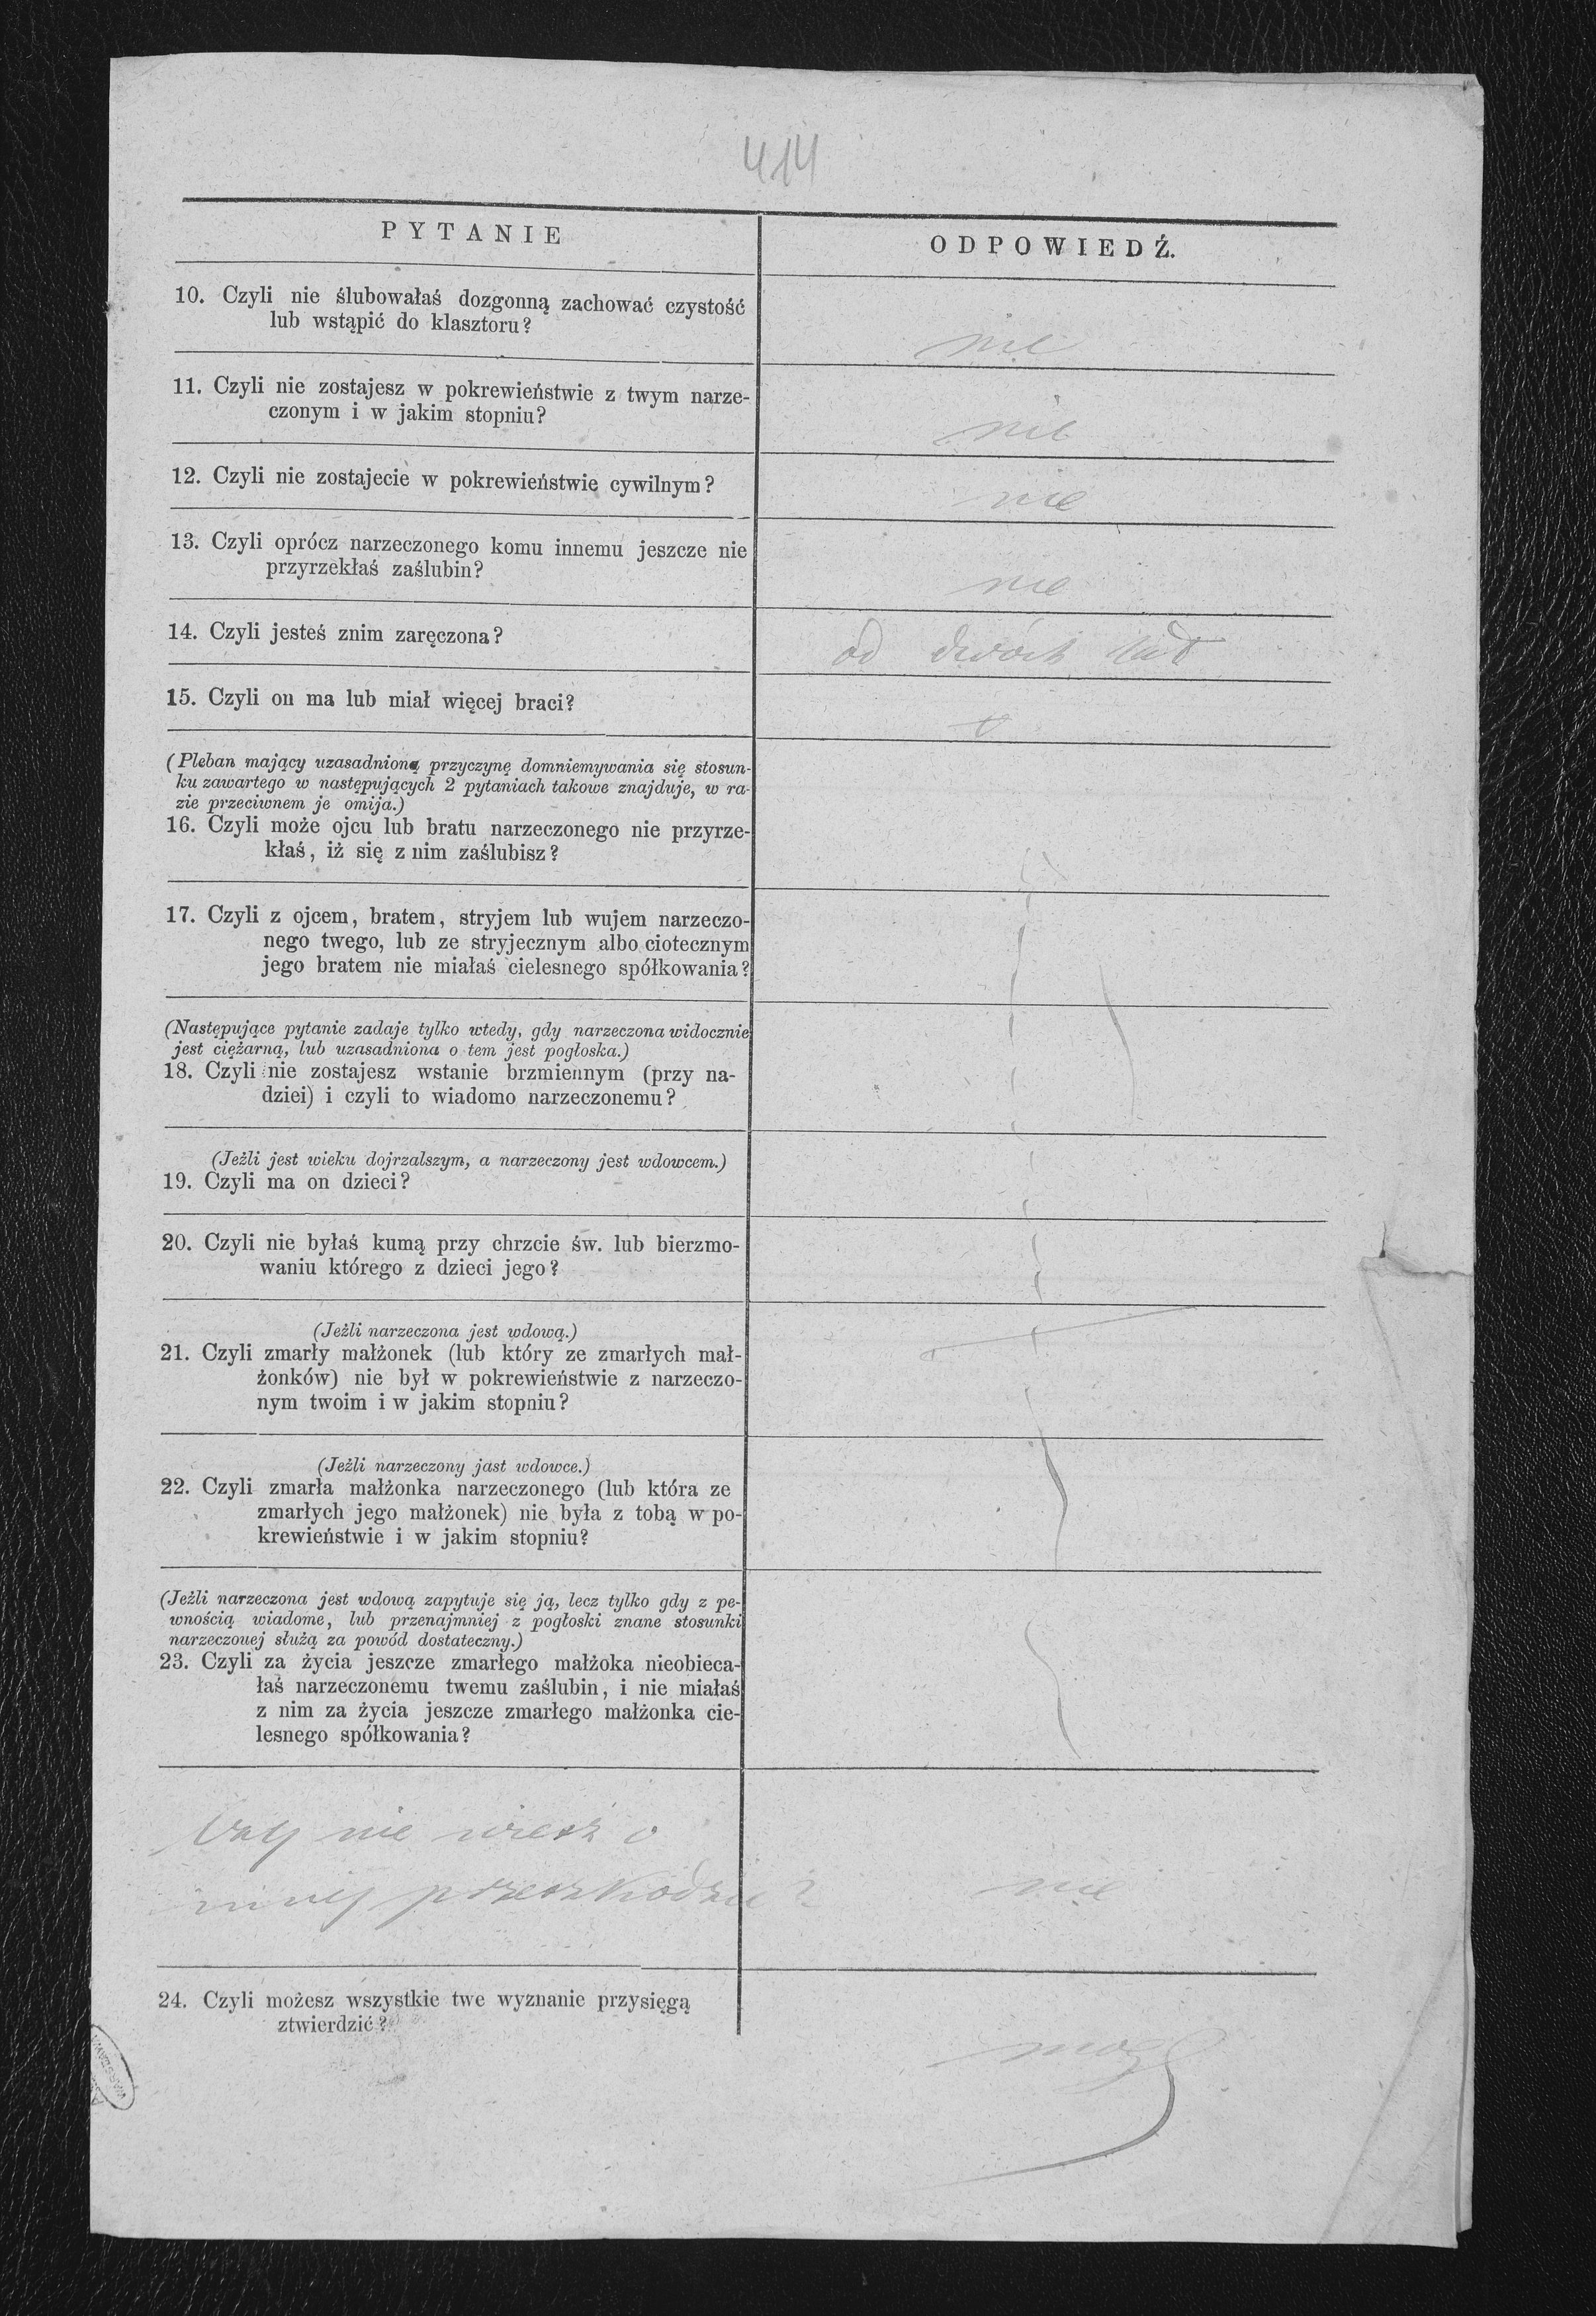 414
PYTANIE
ODPOWIEDŹ.
10. Czyli nie ślubowałaś dozgonną zachować czystość
lub wstąpić do klasztoru?
nie
11. Czyli nie zostajesz w pokrewieństwie z twym narze-
czonym i w jakim stopniu?
nie
12. Czyli nie zostajecie w pokrewieństwie cywilnym?
nie
13. Czyli oprócz narzeczonego komu innemu jeszcze nie
przyrzekłaś zaślubin?
nie
14. Czyli jesteś znim zaręczona?
od dwóch lat
15. Czyli on ma lub miał więcej braci?
(Pleban mający uzasadnioną przyczynę domniemywania się stosun-
ku zawartego w następujących 2 pytaniach takowe znajduje, w ra-
zie przeciwnem je omija.)
16. Czyli może ojcu lub bratu narzeczonego nie przyrze-
kłaś, iż się z nim zaślubisz?
17. Czyli z ojcem, bratem, stryjem lub wujem narzeczo-
nego twego, lub ze stryjecznym albo ciotecznym
jego bratem nie miałaś cielesnego spółkowania?
(Następujące pytanie zadaje tylko wtedy, gdy narzeczona widocznie
jest ciężarną, lub uzasadniona o tem jest pogłoska.)
18. Czyli nie zostajesz wstanie brzmiennym (przy na-
dziei) i czyli to wiadomo narzeczonemu?
(Jeźli jest wieku dojrzalszym, a narzeczony jest wdowcem.)
19. Czyli ma on dzieci?
20. Czyli nie byłaś kumą przy chrzcie św. lub bierzmo-
waniu którego z dzieci jego?
(Jeźli narzeczona jest wdową.)
21. Czyli zmarły małżonek (lub który ze zmarłych mał-
żonków) nie był w pokrewieństwie z narzeczo-
nym twoim i w jakim stopniu?
(Jeźli narzeczony jast wdowce.)
22. Czyli zmarła małżonka narzeczonego (lub która ze
zmarłych jego małżonek) nie była z tobą w po-
krewieństwie i w jakim stopniu?
(Jeźli narzeczona jest wdową zapytuje się ją, lecz tylko gdy z pe-
wnością wiadome, lub przenajmniej z pogłoski znane stosunki
narzeczouej służą za powód dostateczny.)
23. Czyli za życia jeszcze zmarłego małżoka nieobieca-
łaś narzeczonemu twemu zaślubin, i nie miałaś
z nim za życia jeszcze zmarłego małżonka cie-
lesnego spółkowania?
Czy nie wiesz o
innej przeszkodzie?
nie
24. Czyli możesz wszystkie twe wyznanie przysięgą
ztwierdzić?
mogę
WARSZAWA